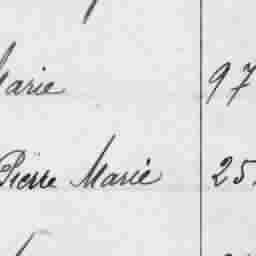 Marie 97
Pierre Marie 25